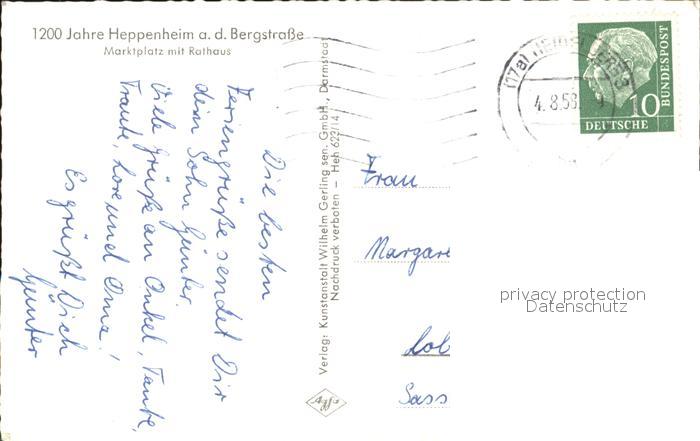 1200 Jahre Heppenheim a. d. Bergstraße
Marktplatz mit Rathaus
Die besten
Feriengrüße sendet Dir
dein Sohn Günter.
Viele Grüße an Onkel, Tante,
Traute, Lore und Oma!
Es grüßt Dich
Günter
Verlag: Kunstanstalt Wilhelm Gerling sen. GmbH., Darmstadt
Nachdruck verboten – Heh 623/14
Agfa
(17a)
4.8.58
10
DEUTSCHE
BUNDESPOST
Frau
Margare
Lob
Sass
privacy protection
Datenschutz